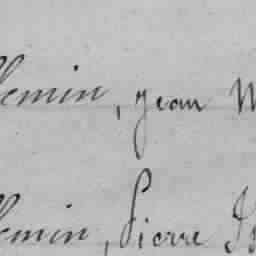 lemin, jean M
lemin, Pierre